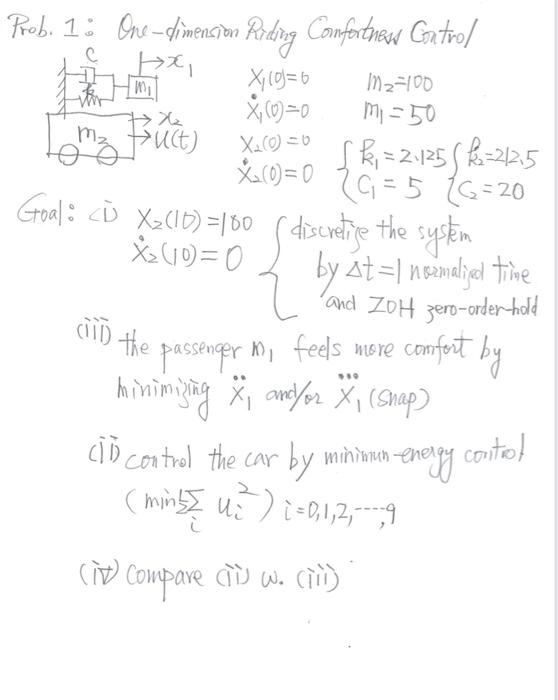 Prob. 1: One-dimension Riding Comfortness Control
C
k
m₁
→x₁
m₂
→x₂
→u(t)
X₁(0)=0
Ẋ₁(0)=0
X₂(0)=0
Ẋ₂(0)=0
m₂=100
m₁=50
{k₁=2.125 {k₂=212.5
{C₁=5 {C₂=20
Goal: (i) X₂(10)=100
Ẋ₂(10)=0
{discretize the system
by Δt=1 normalized time
and ZOH zero-order-hold
(iii) the passenger m₁ feels more comfort by
minimizing Ẍ₁ and/or X⃛₁ (Snap)
(ii) control the car by minimun-energy control
(min ½∑ᵢ uᵢ²) i=0,1,2,----,9
(iv) compare (ii) w. (iii)